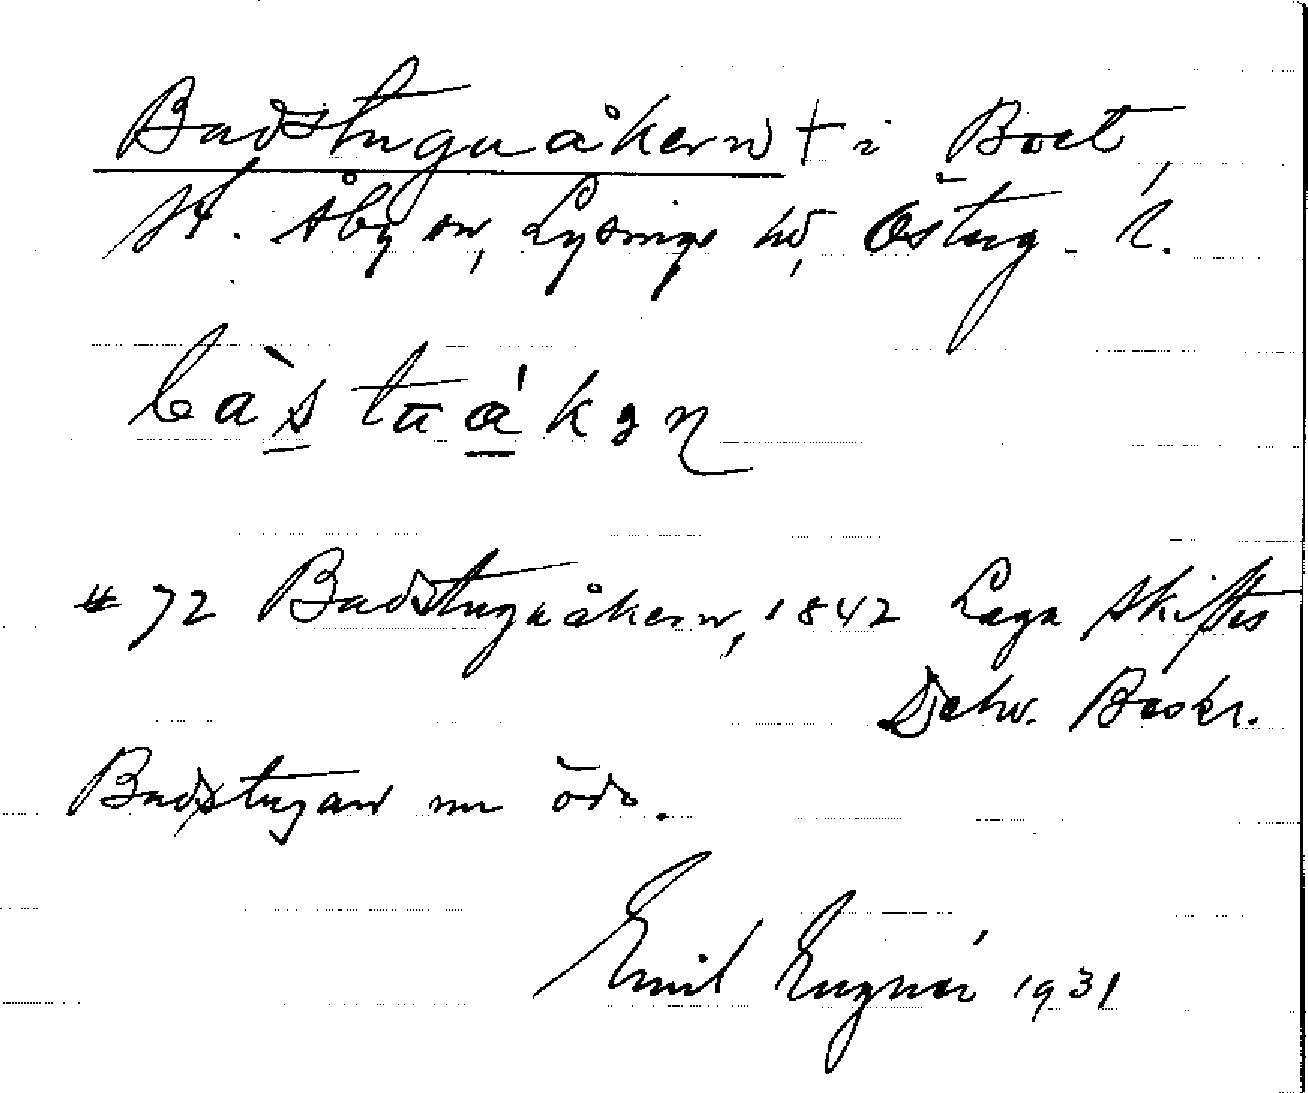 Badstuguåkern † i Boet,
St. Åby sn, Lysings hd, Östug. l.
bàstuåkən
# 72 Badstuguåkern, 1842 Laga Skiftes
Deln. Beskr.
Badstugan nu öde.
Emil 1931